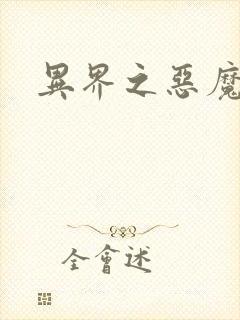 異界之惡魔
全會述